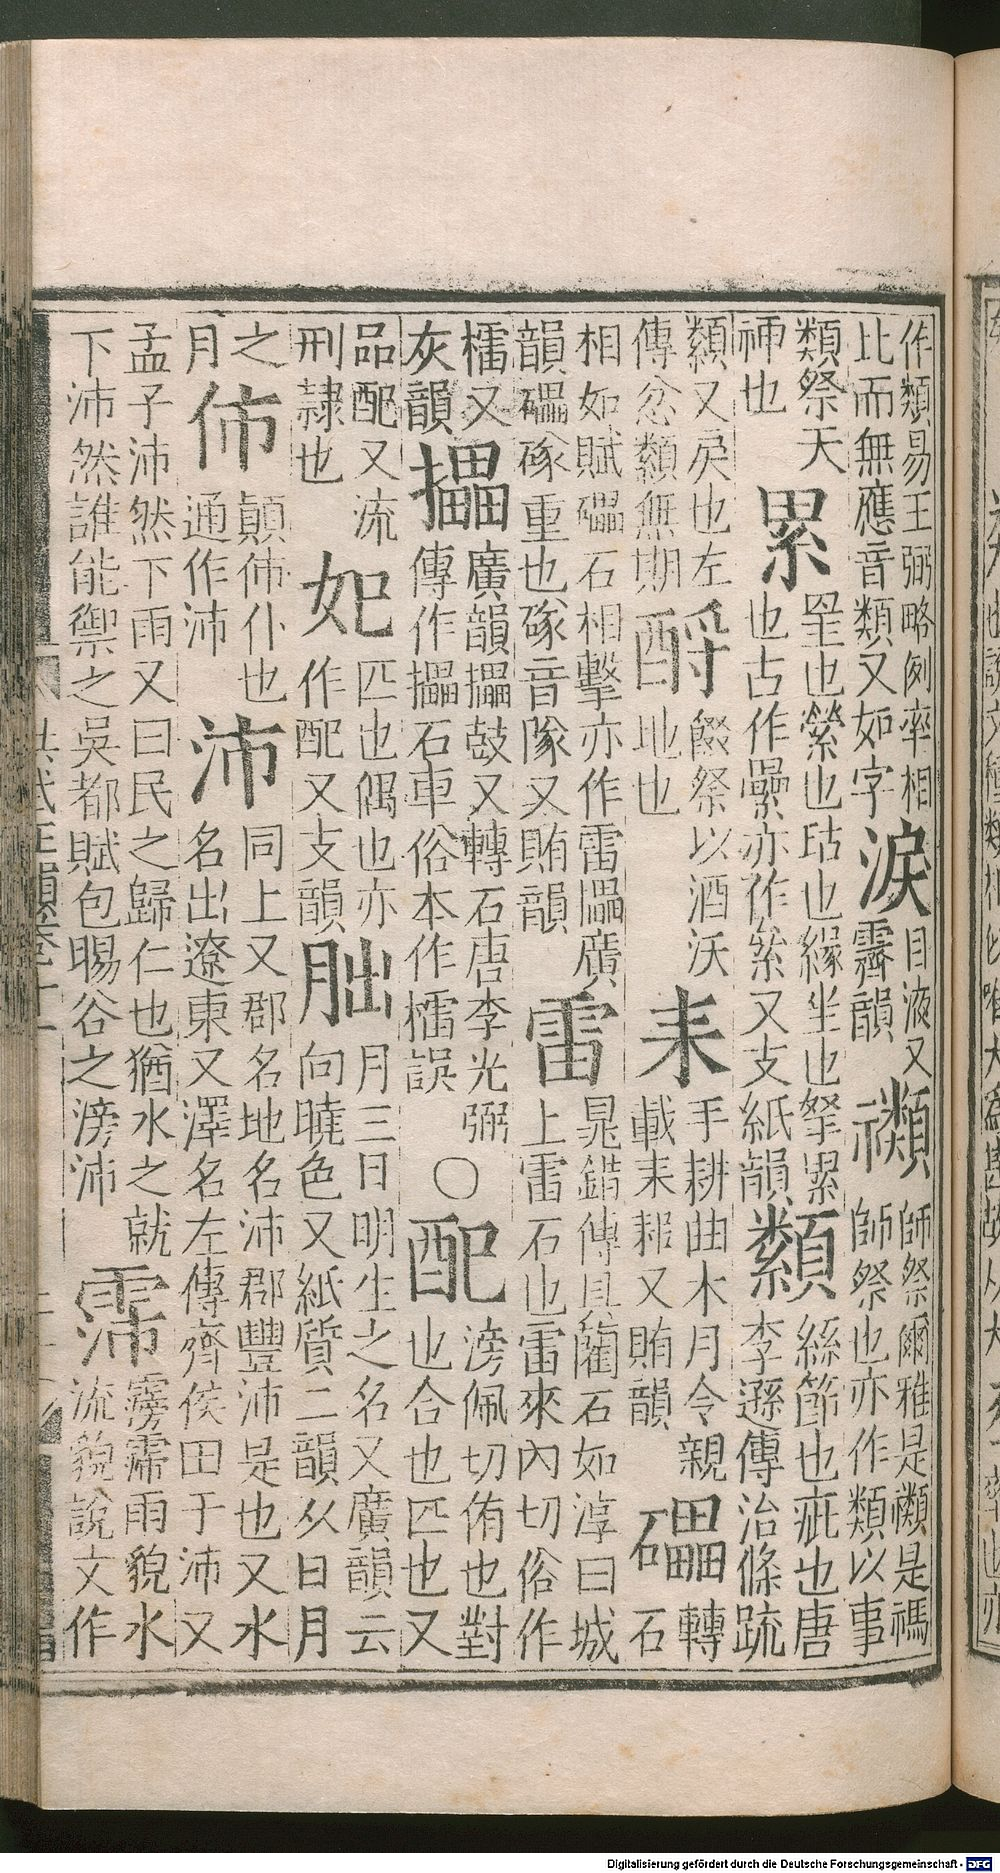 作類易王弼略例率相
比而無應音類又如字
淚
目液又
霽韻
禷
師祭爾雅是禷是禡
師祭也亦作類以事
類祭天
神也
累
罣也縈也玷也緣坐也孥累
也古作纍亦作絫又支紙韻
纇
絲節也疵也唐
李遜傳治條疏
纇又戾也左
傳忿纇無期
酹
餟祭以酒沃
地也
耒
手耕曲木月令親
載耒耜又賄韻
礧
轉
石
相如賦礧石相擊亦作雷壘廣
韻礧硺重也硺音隊又賄韻
雷
晁錯傳具藺石如淳曰城
上雷石也雷來內切俗作
檑又
灰韻
攂
廣韻攂鼓又轉石唐李光弼
傳作攂石車俗本作檑誤
○
配
滂佩切侑也對
也合也匹也又
品配又流
刑隸也
妃
匹也偶也亦
作配又支韻
朏
月三日明生之名又廣韻云
向曉色又紙質二韻从日月
之
月
伂
顛伂仆也
通作沛
沛
同上又郡名地名沛郡豐沛是也又水
名出遼東又澤名左傳齊侯田于沛又
孟子沛然下雨又曰民之歸仁也猶水之就
下沛然誰能禦之吳都賦包暘谷之滂沛
霈
霶霈雨貌水
流貌說文作
Digitalisierung gefördert durch die Deutsche Forschungsgemeinschaft - DFG